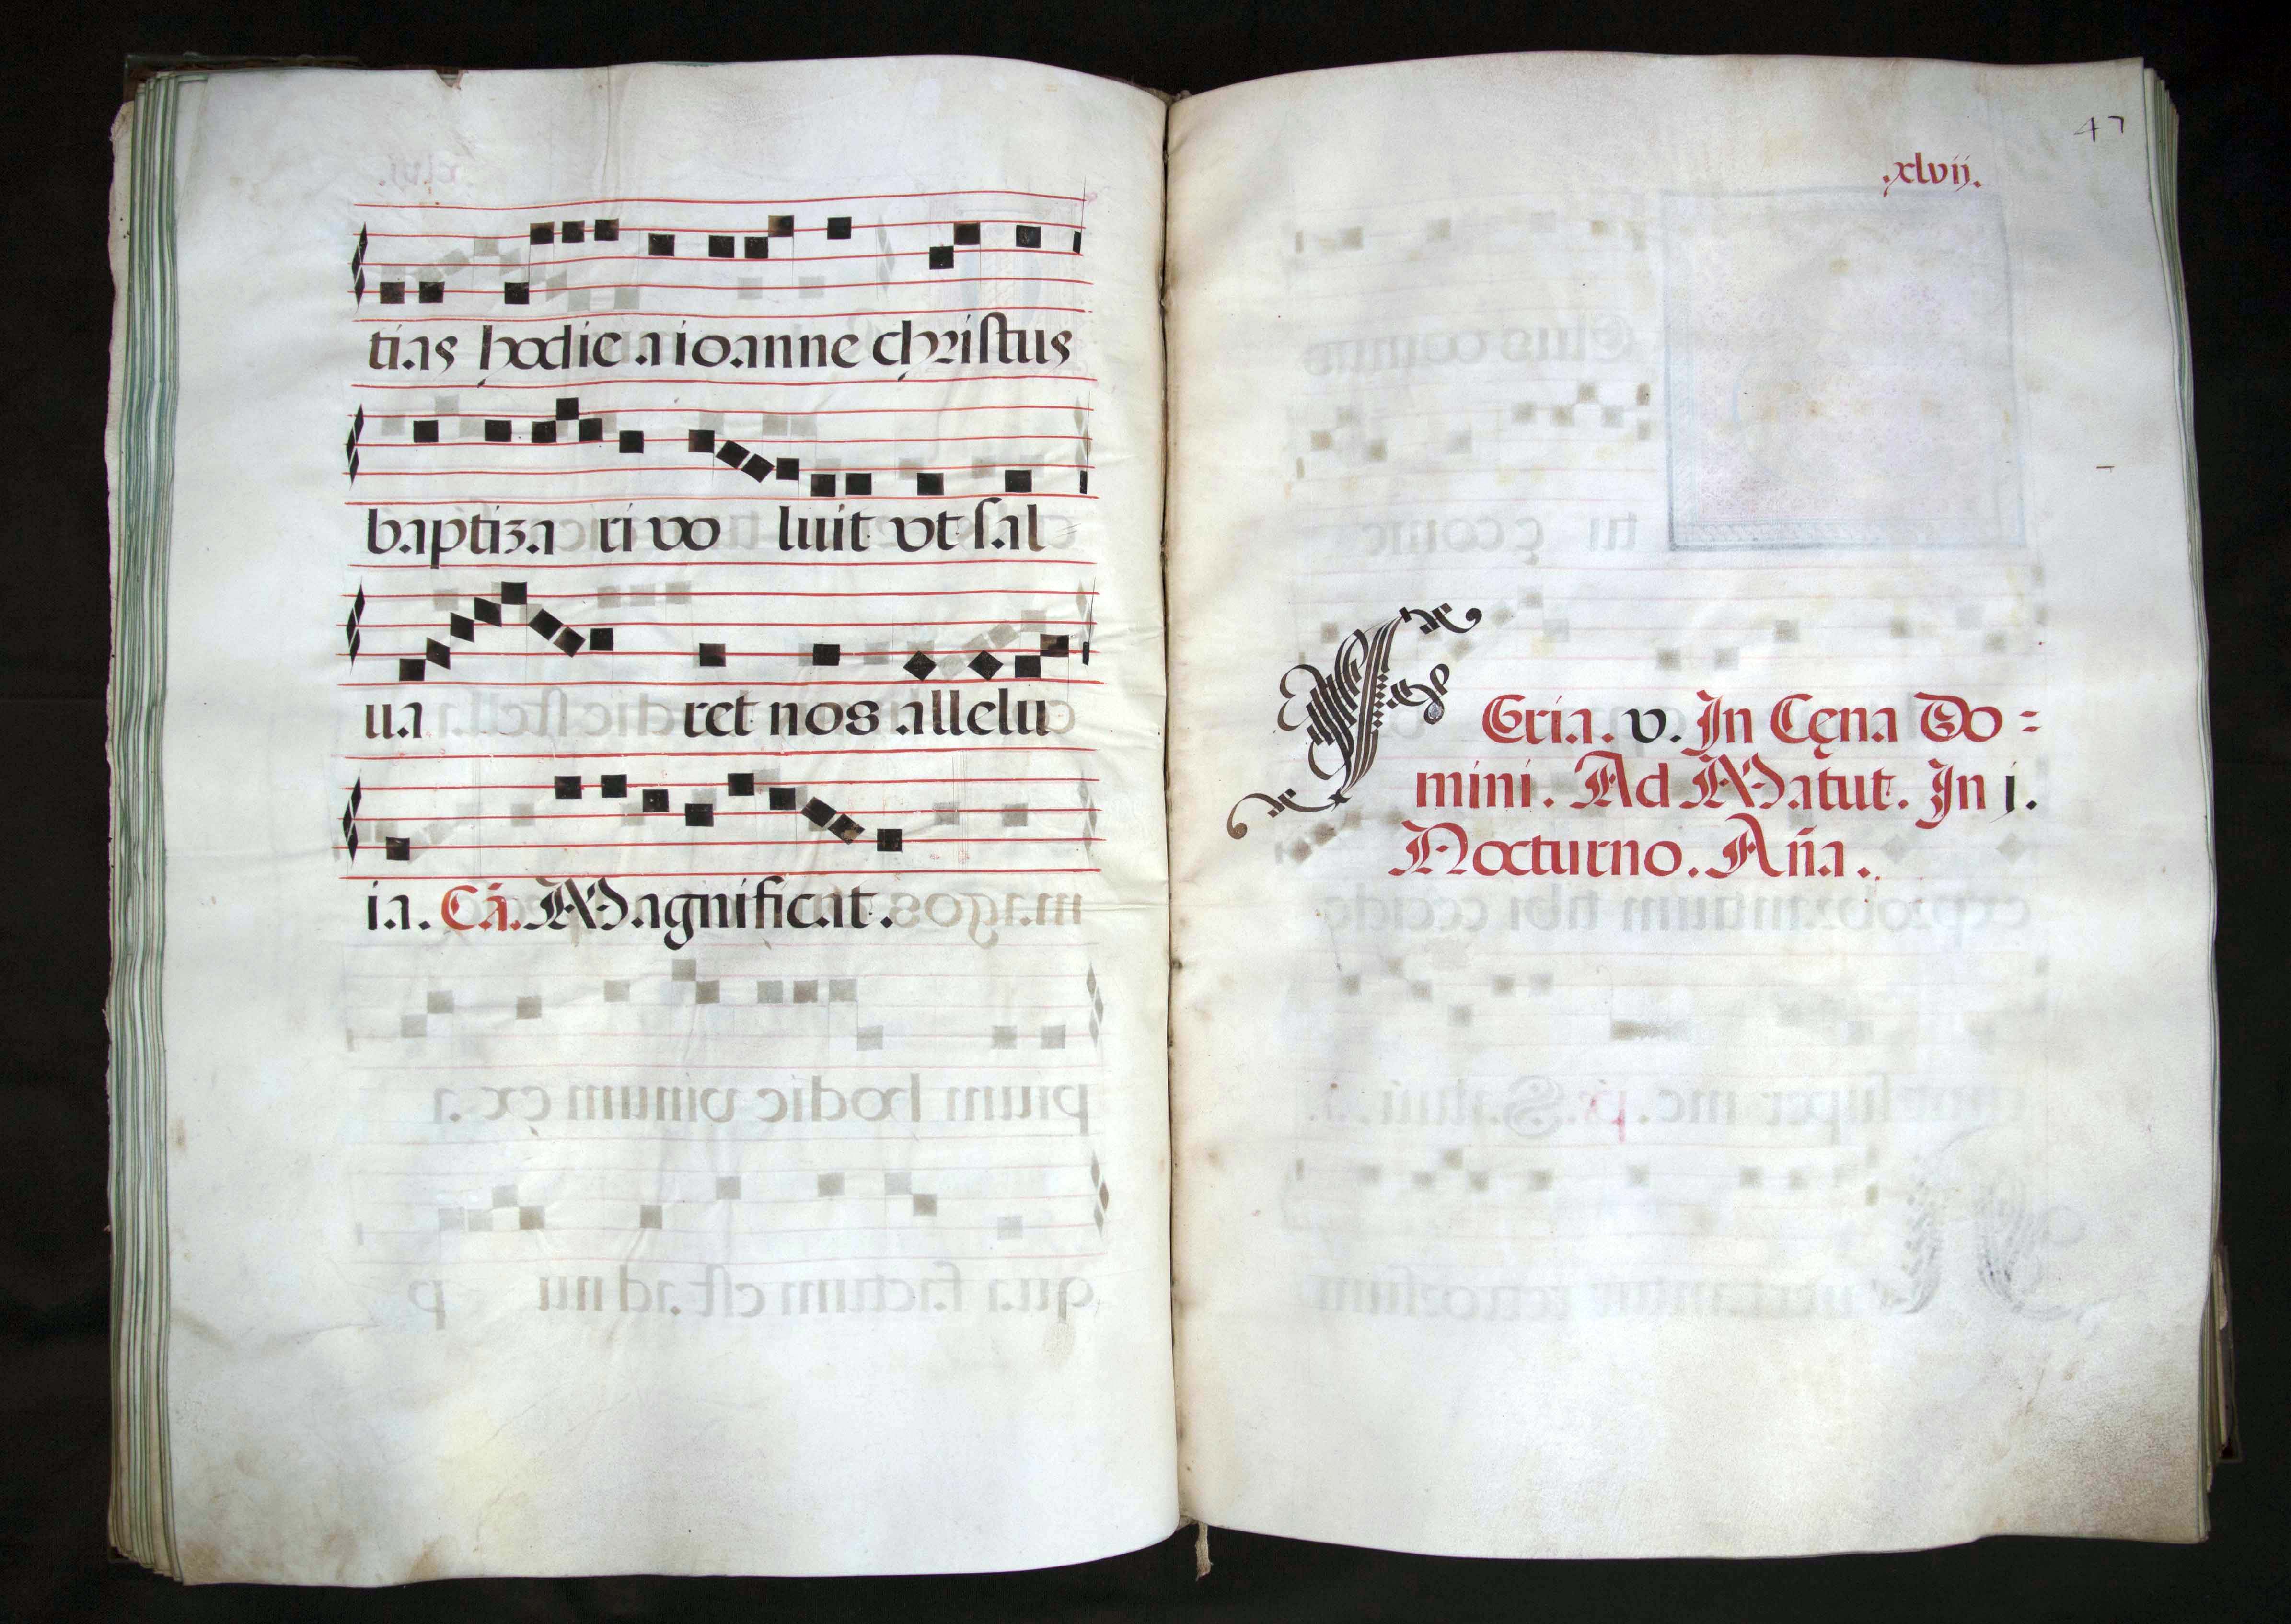 tias hodie a ioanne christus
baptiza ri vo luit vt sal
ua ret nos allelu
ia. Cā. Magnificat.
47
.xlvij.
FEria. v. In Cęna Do=
mini. Ad Matut. In j.
Nocturno. Aña.